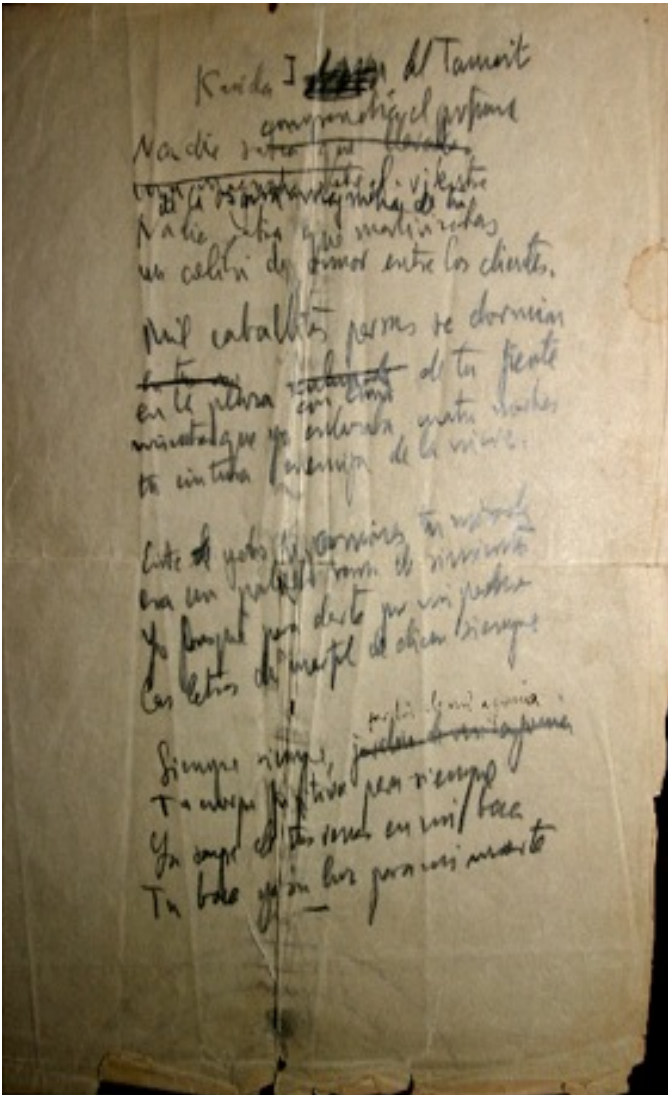 Kasida I del Tamarit
comprendía el perfume
Nadie sabía que
de la oscura magnolia de tu vientre
Nadie sabía que martirizabas
un colibrí de amor entre los dientes.
Mil caballitos persas se dormían
en la plaza con luna de tu frente
mientras que yo enlazaba cuatro noches
tu cintura enemiga de la nieve.
Entre yeso y jazmines tu mirada
era un pálido ramo de simientes
Yo busqué para darte por mi pecho
Las letras de marfil que dicen siempre
jardín de mi agonía
Siempre siempre, jardín de mi agonía
Tu cuerpo fugitivo para siempre
sangre de tus venas en mi boca
Tu boca ya sin luz para mi muerte